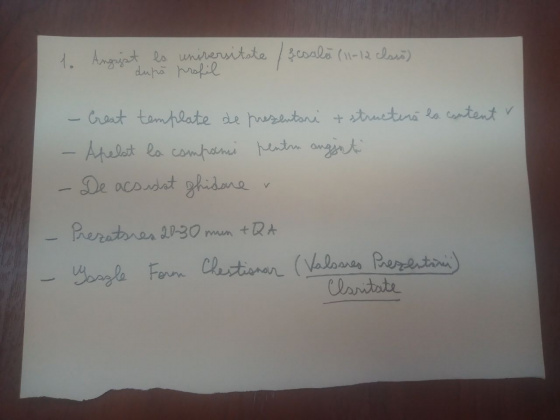 1. Angajat la universitate / școală (11-12 clasă)
după profil
- Creat template de prezentari + structură la content ✓
- Apelat la companii pentru angajați
- De acordat ghidare ✓
- Prezatarea 20-30 min + QA
- Google Form Chestionar (Valoarea Prezentării)
Claritate